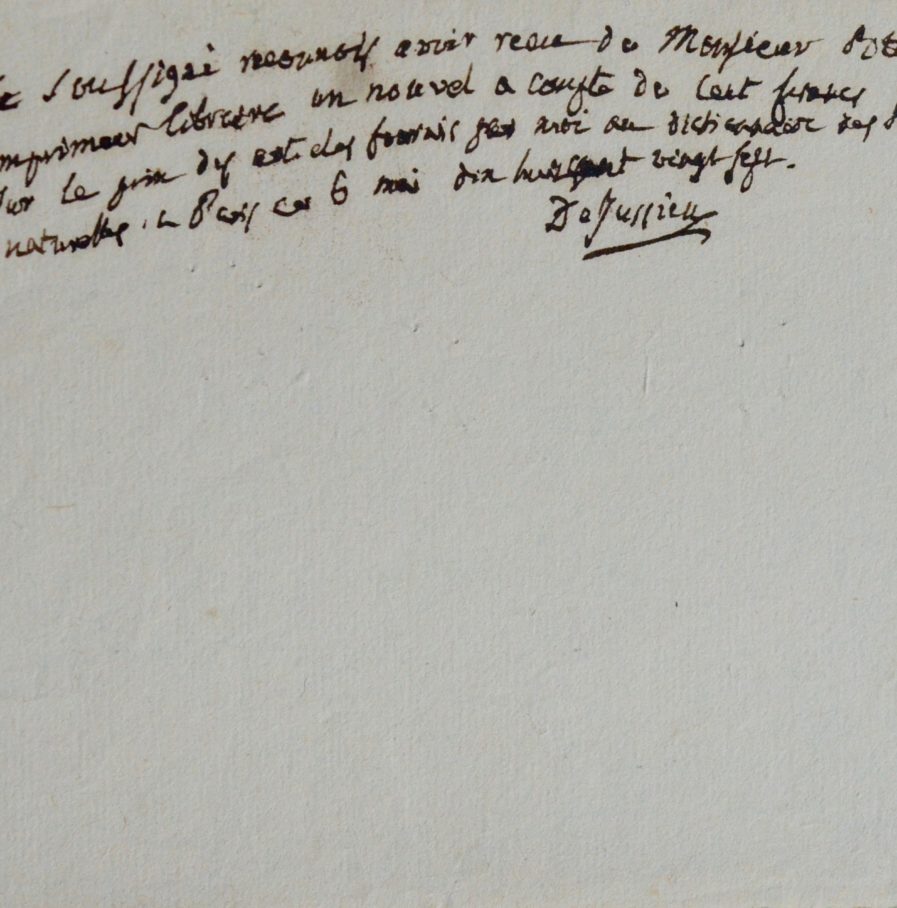 soussigné reconnois avoir reçu de Monsieur
imprimeur libraire un nouvel a compte de cent francs
sur le prix des articles fournis par moi au dictionnaire des
naturelles. a Paris ce 6 mai dix huit cent vingt sept.
De Jussieu